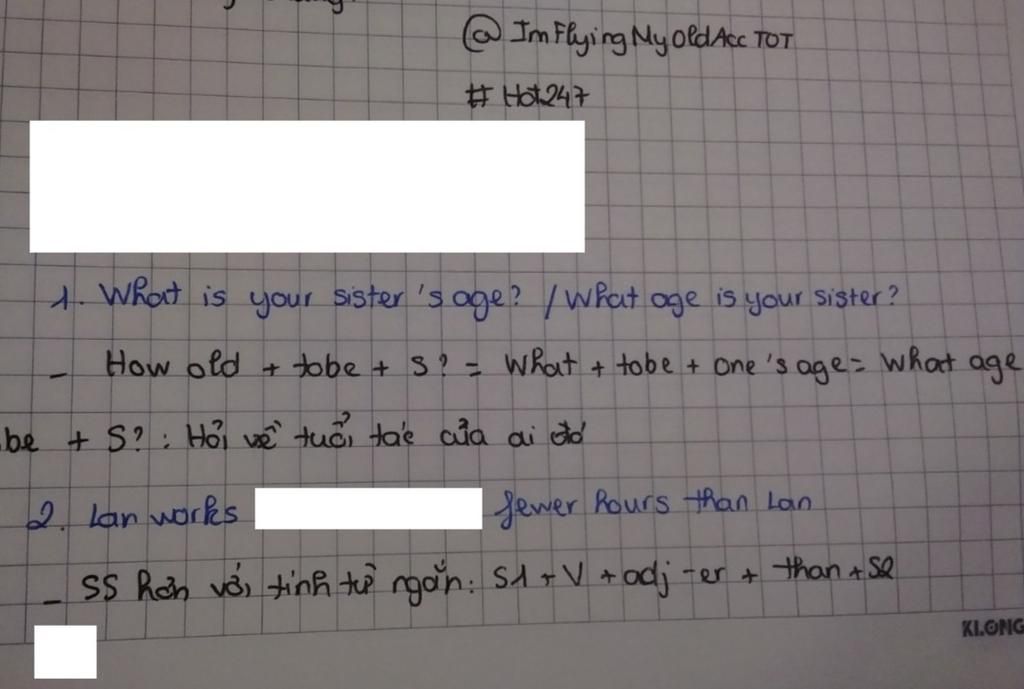 @ ImFlyingMyOldAcc TOT
# Hot247
1. What is your sister's age? / What age is your sister?
- How old + tobe + S? = What + tobe + one's age = What age
be + S?: Hỏi về tuổi tác của ai đó
2. Lan works fewer hours than Lan
- SS hơn với tính từ ngắn: S1 + V + adj -er + than + S2
KLONG